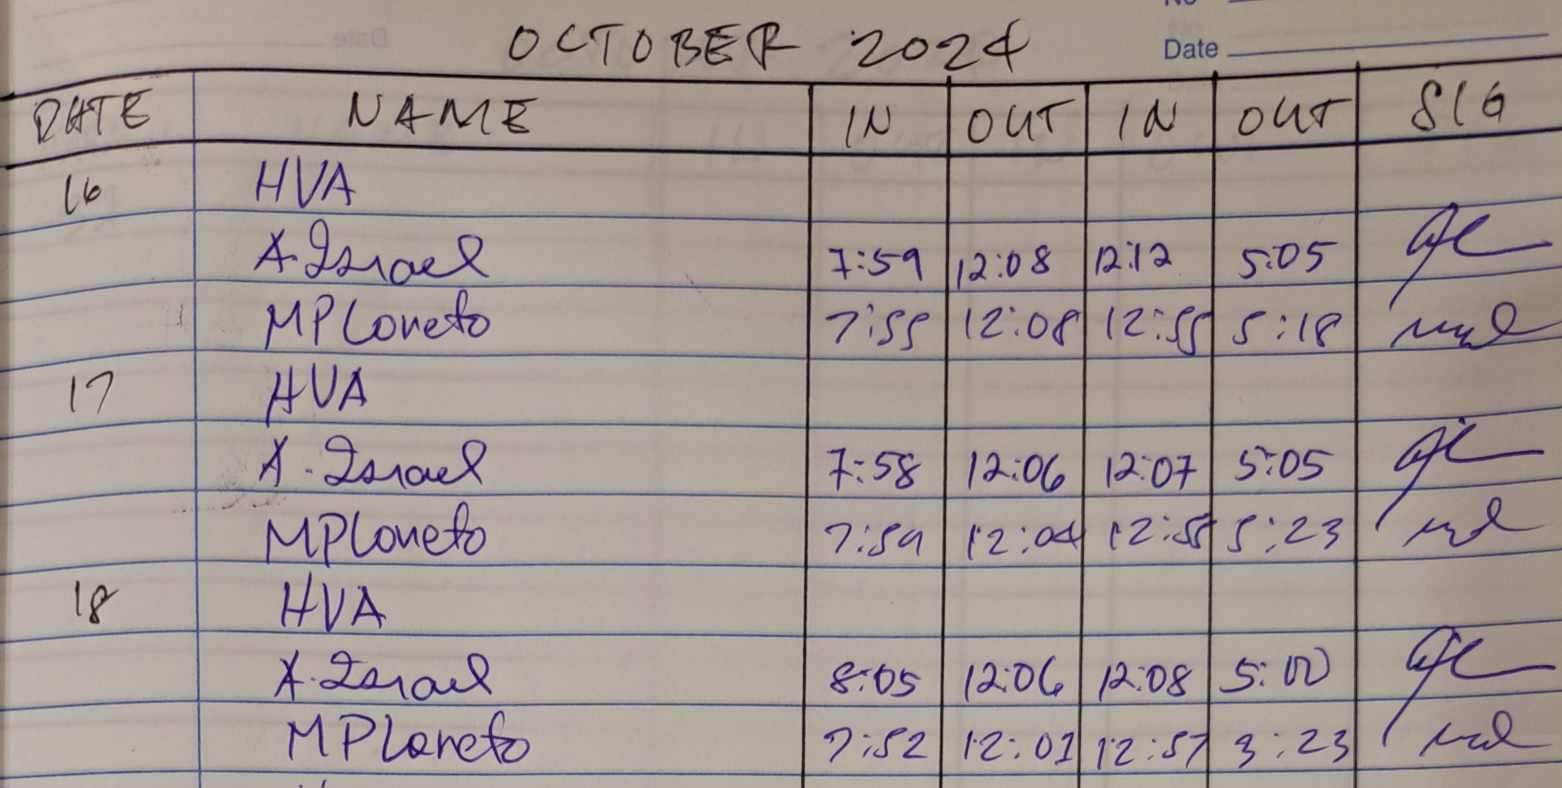 No
OCTOBER 2024
Date
DATE NAME IN OUT IN OUT SIG
16 HVA
A. Israel 7:59 12:08 12:12 5:05
MPLoreto 7:55 12:08 12:55 5:18
17 HVA
A. Israel 7:58 12:06 12:07 5:05
MPLoreto 7:59 12:04 12:58 5:23
18 HVA
A. Israel 8:05 12:06 12:08 5:00
MPLoreto 7:52 12:01 12:57 3:23